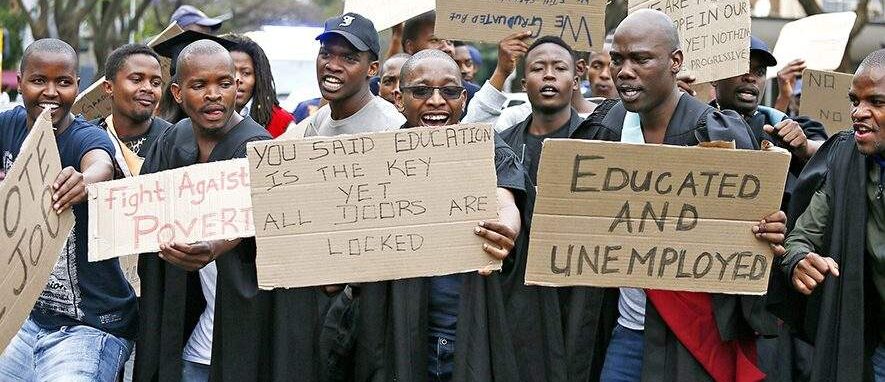 WE
GRADUATED
BUT
PE IN OUR
YET NOTHIN
PROGRESSIVE
NO
NO
OTE
JO
Fight Against
Poverty
YOU SAID EDUCATION
IS THE KEY
YET
ALL DOORS ARE
LOCKED
EDUCATED
AND
UNEMPLOYED